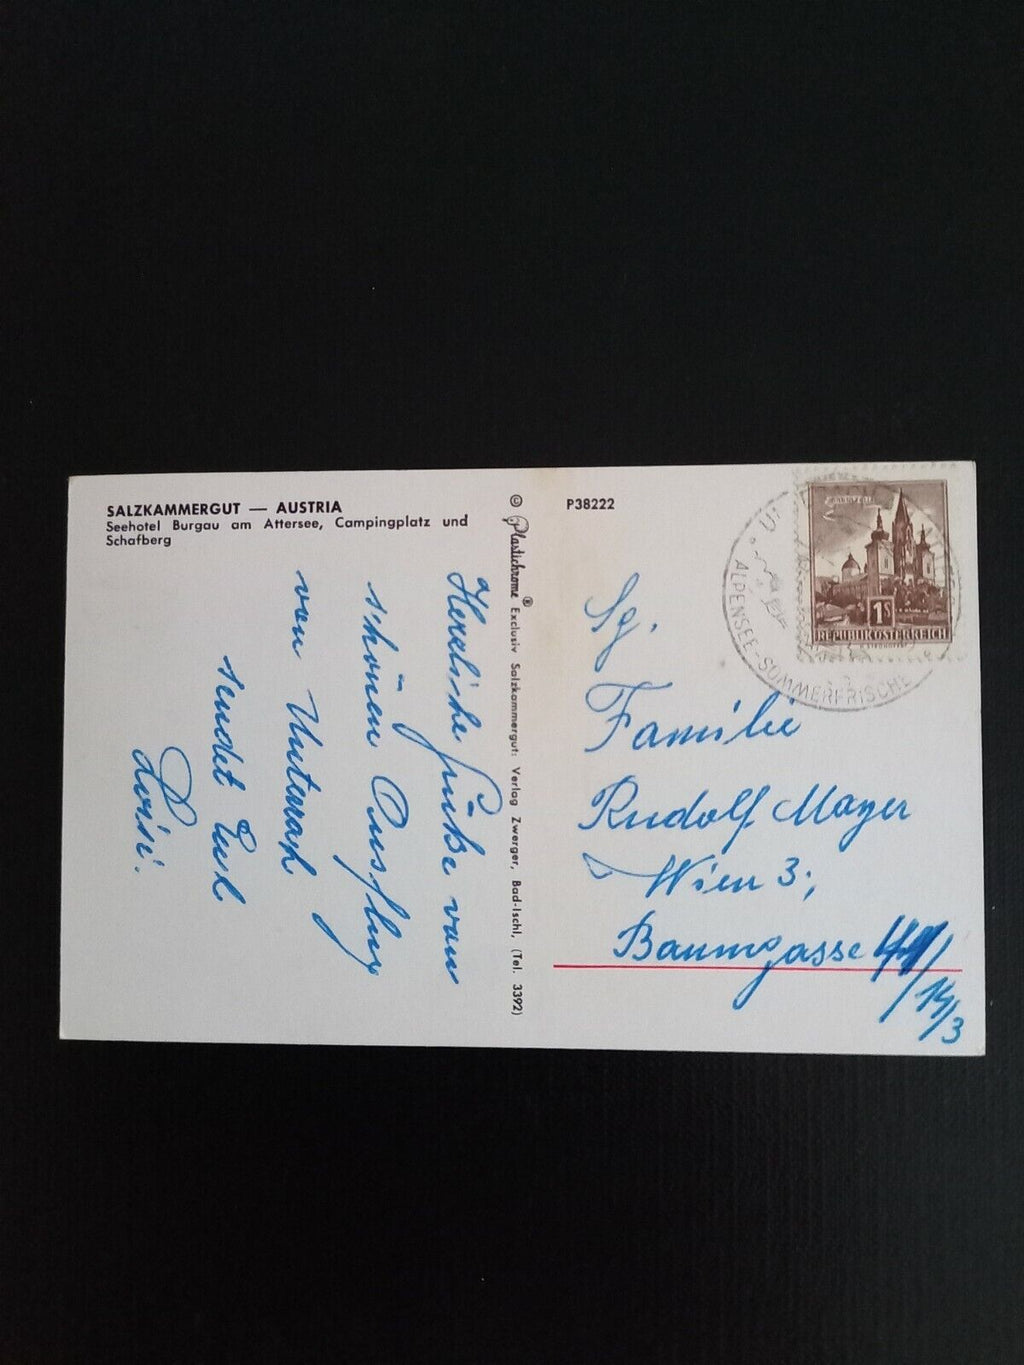 SALZKAMMERGUT — AUSTRIA
Seehotel Burgau am Attersee, Campingplatz und
Schafberg
Herzliche Grüße vom
schönen Ausflug
von Unterach
sendet Euch
© Plastichrome ® Exclusiv Salzkammergut: Verlag Zwerger, Bad-Ischl, (Tel. 3392)
P38222
ALPENSEE-SOMMERFRISCHE
1S
REPUBLIK ÖSTERREICH
Fam.
Familie
Rudolf Mayer
Wien 3.,
Baumgasse
14/3